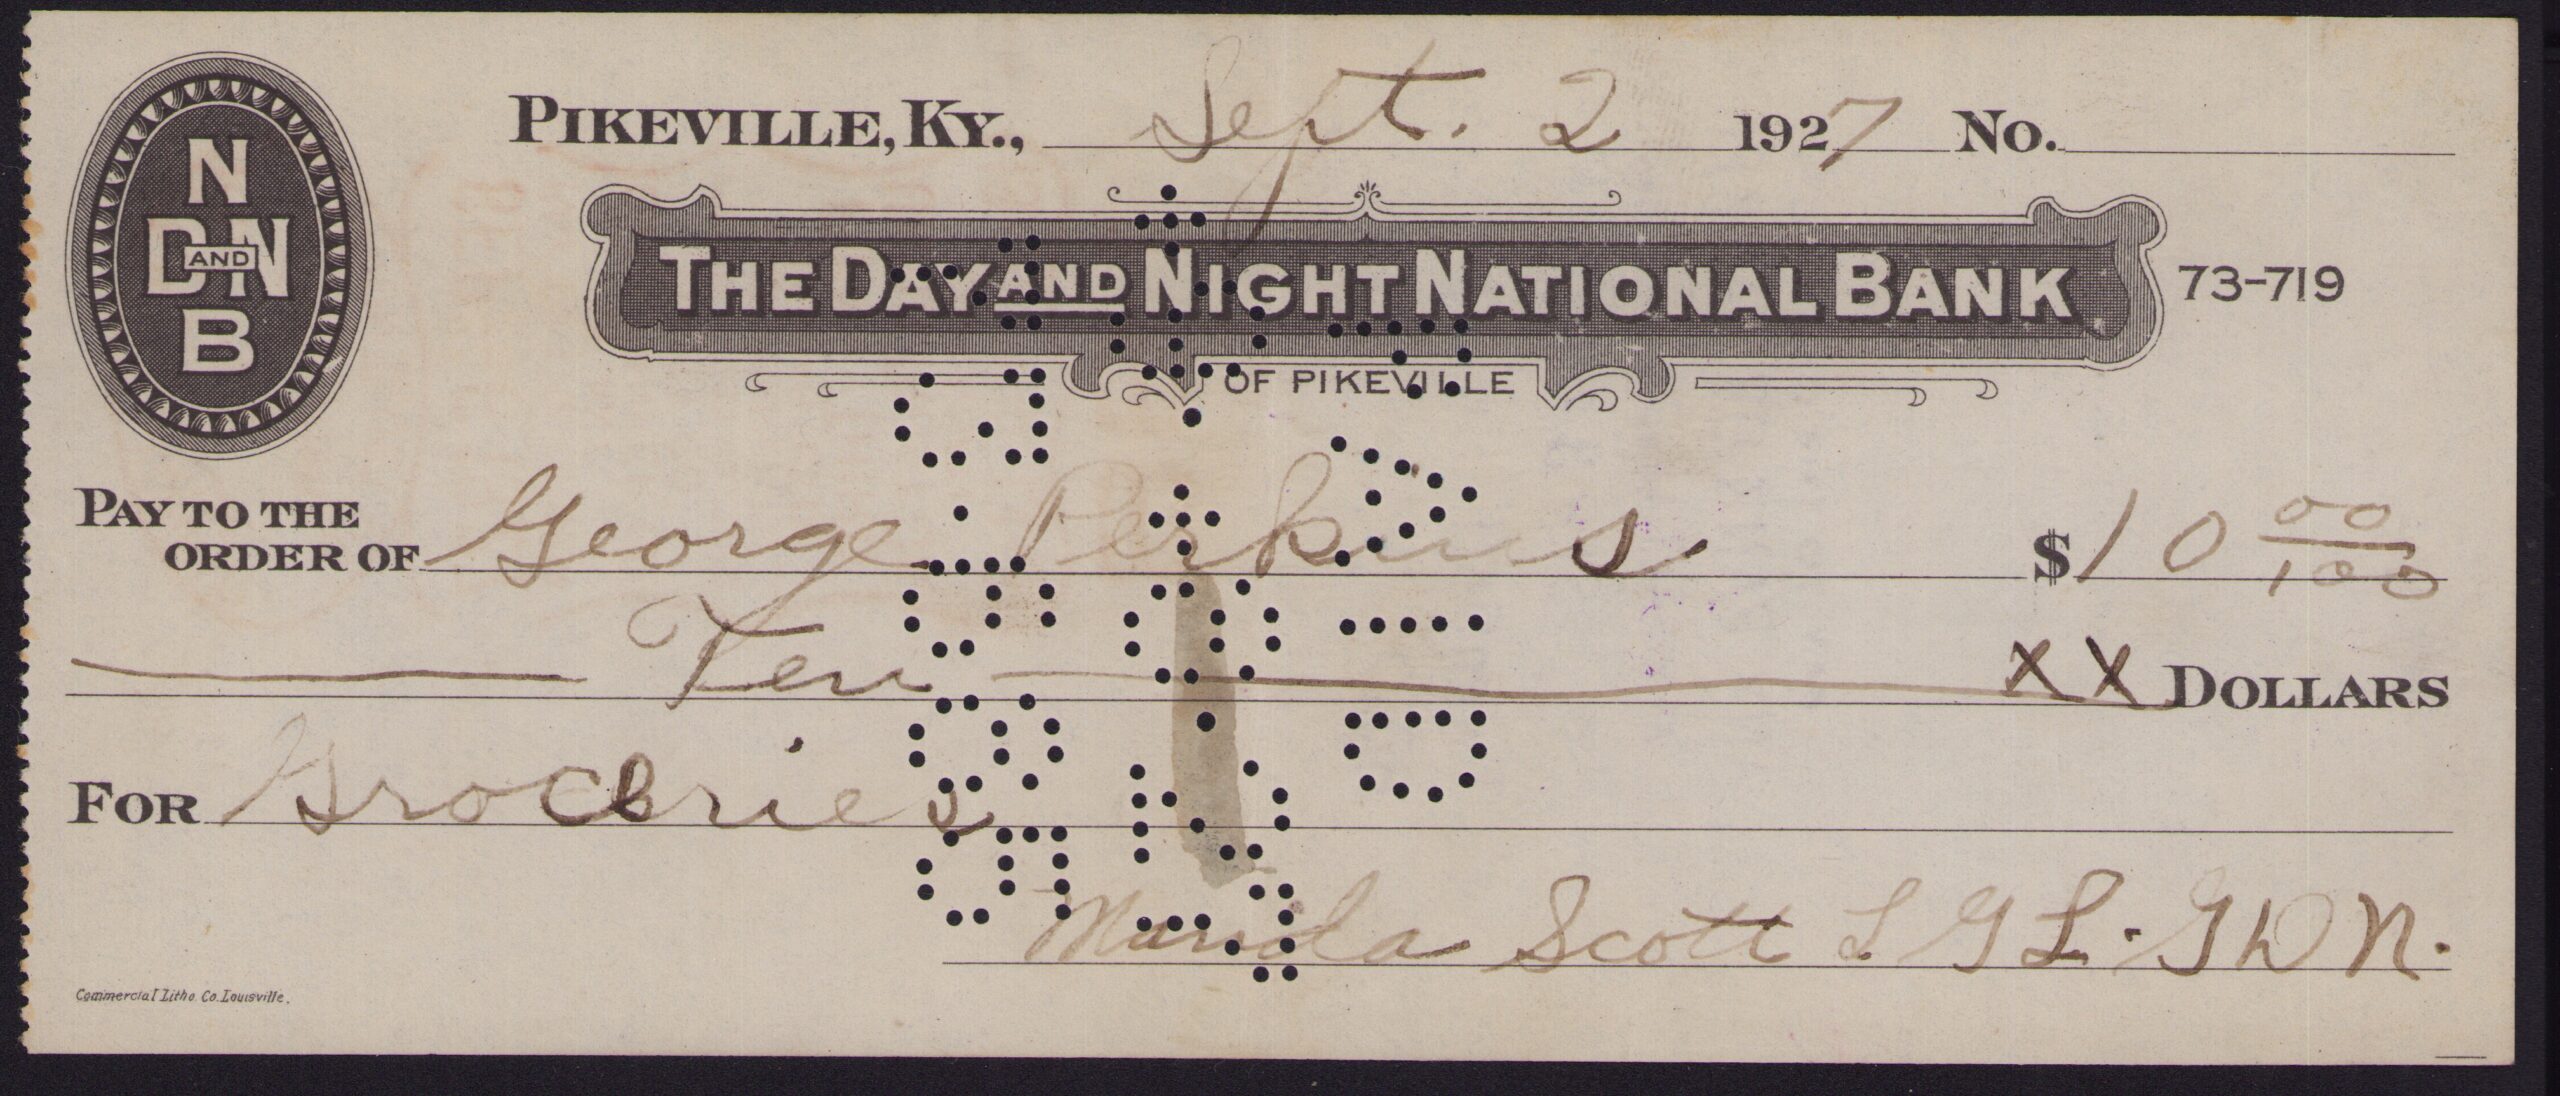 N
D AND N
B
PIKEVILLE, KY., Sept. 2 1927 No.
THE DAY AND NIGHT NATIONAL BANK 73-719
OF PIKEVILLE
PAY TO THE
ORDER OF George Perkins. $10 00/100
Ten XX DOLLARS
FOR Groceries
Manda Scott L G L. G D N.
Commercial Litho. Co. Louisville.